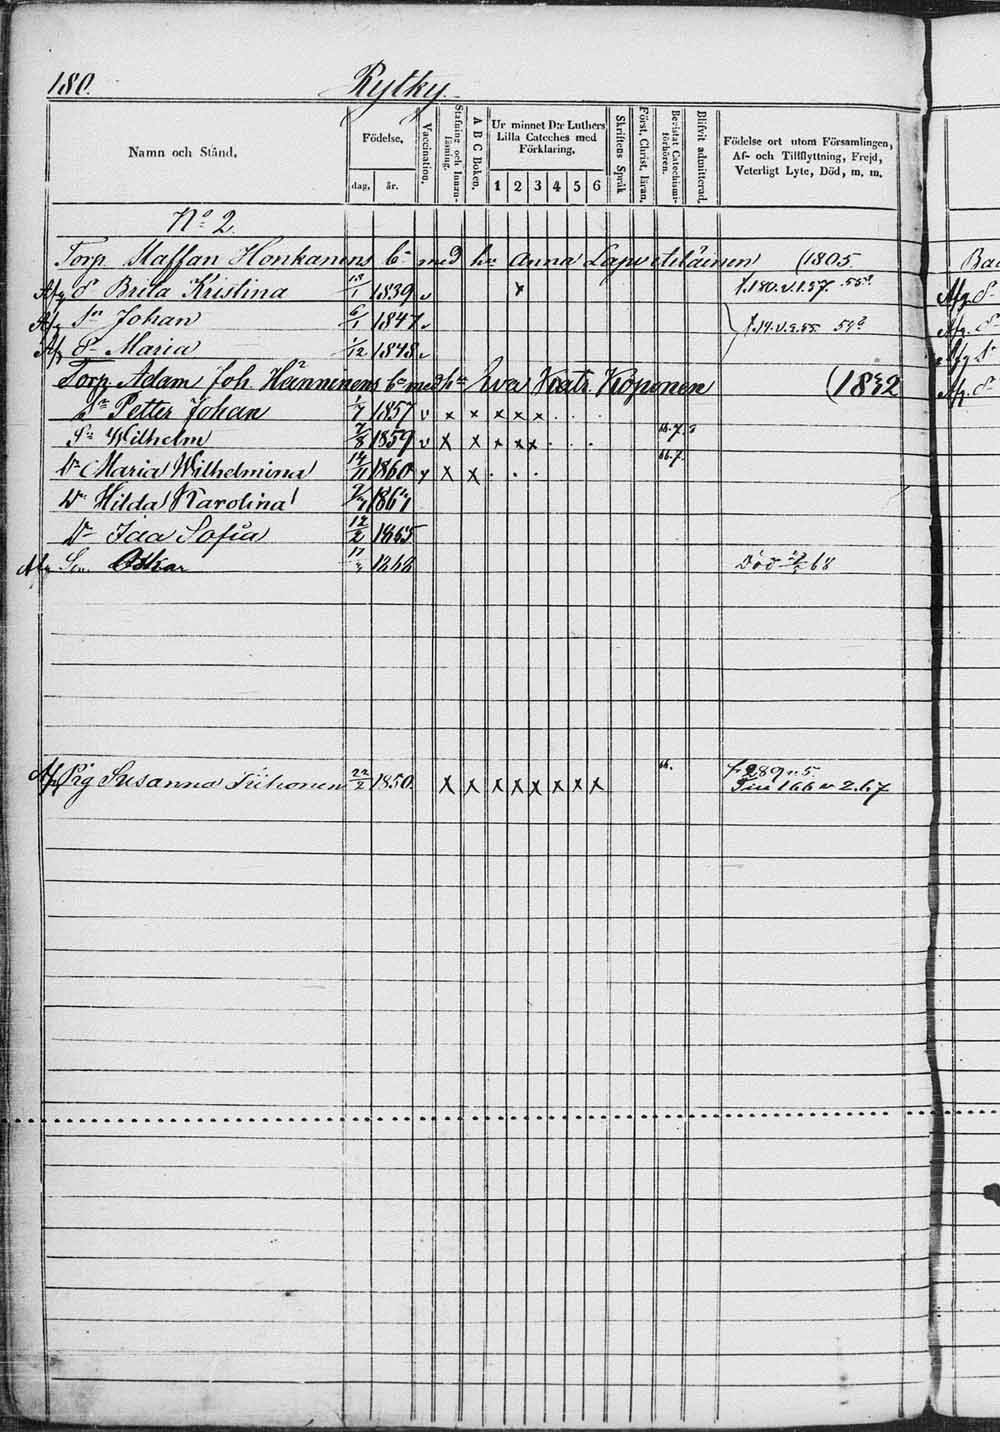 180.
Rytky.
Namn och Stånd.
Födelse.
dag. år.
Vaccination.
Stafning och Innanläsning.
A B C Boken.
Ur minnet D:r Luthers Lilla Cateches med Förklaring.
1 2 3 4 5 6
Skriftens Språk
Först. Christ. läran.
Bevistat Catechismiförhören.
Blifvit admitterad.
Födelse ort utom Församlingen, Af- och Tillflyttning, Frejd, Veterligt Lyte, Död, m. m.
No 2.
Torp. Staffan Honkanens bn med hu Anna (1805.
Afg Dr Brita Kristina 1839 v x f.180.v.157.
Afg Sn Johan 6/1 1847 v
Afg Dr Maria 1/12 1848 v
Torp. Adam Joh. Hänninens bn med hu Eva Katr. Koponen
Sn Petter Johan 1/7 1857 v x x x x x . . .
Sn Wilhelm 7/8 1859 v x x x x x . . . 66.7.
Dr Maria Wilhelmina 14/11 1860 v x x . . . 66.7.
Dr Hilda Karolina
Dr Ida Sofia 12/2 1865
Afg Sn Oskar 1868 Död 68
Afg Pig Susanna 22/2 1850. x x x x x x x x 66. f 289 v. 5.
166 v 2.67